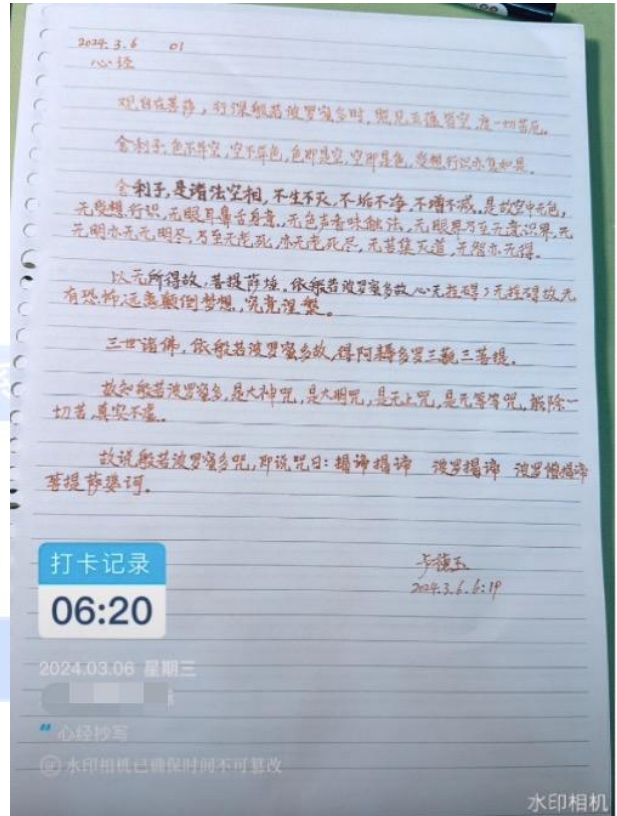 2024.3.6 01
心经
观自在菩萨,行深般若波罗蜜多时,照见五蕴皆空,度一切苦厄。
舍利子,色不异空,空不异色,色即是空,空即是色,受想行识亦复如是。
舍利子,是诸法空相,不生不灭,不垢不净,不增不减,是故空中无色,
无受想行识,无眼耳鼻舌身意,无色声香味触法,无眼界乃至无意识界,无
无明亦无无明尽,乃至无老死,亦无老死尽,无苦集灭道,无智亦无得。
以无所得故,菩提萨埵,依般若波罗蜜多故心无挂碍;无挂碍故无
有恐怖远离颠倒梦想,究竟涅槃。
三世诸佛,依般若波罗蜜多故,得阿耨多罗三藐三菩提。
故知般若波罗蜜多,是大神咒,是大明咒,是无上咒,是无等等咒,能除一
切苦,真实不虚。
故说般若波罗蜜多咒,即说咒曰:揭谛揭谛 波罗揭谛 波罗僧揭谛
菩提萨婆诃。
2024.3.6.6:19
打卡记录
06:20
2024.03.06 星期三
心经抄写
水印相机已确保时间不可篡改
水印相机